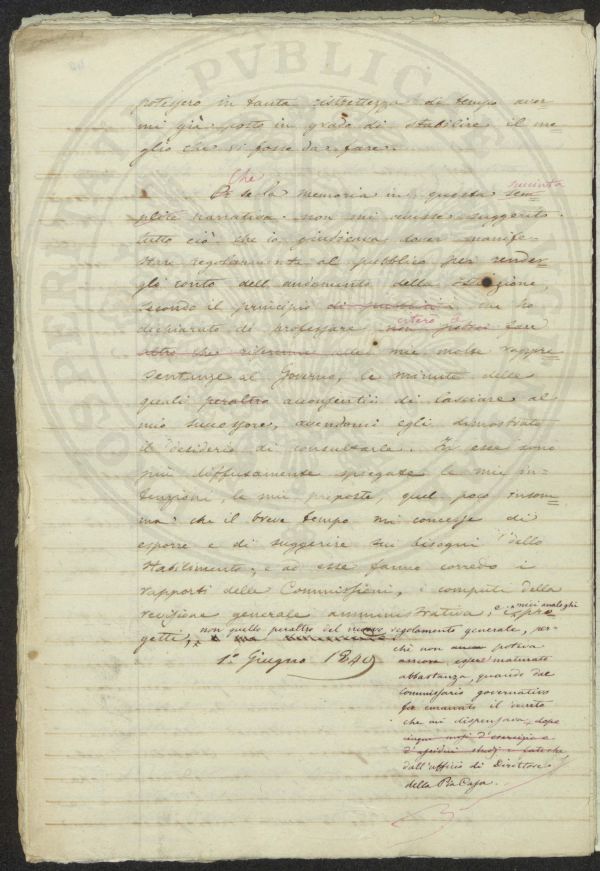 potessero in tanta ristrettezza di tempo aver
mi già posto in grado di stabilire il me=
glio che vi fosse da fare.
Che
se la memoria in questa succinta
plice narrativa non mi avesse suggerito
tutto ciò che io giudicava dover manife=
stare regolarmente al pubblico per render=
gli conto dell'andamento della Istituzione,
secondo il principio di pubblicità che ho
dichiarato di professare
altro che riferirmi alle mie molte rappre=
sentanze al Governo, le minute delle
quali peraltro acconsentii di lasciare al
mio successore, avendomi egli dimostrato
il desiderio di consultarle. In esse sono
più diffusamente spiegate le mie in=
tenzioni, le mie proposte, quel poco insom=
ma che il breve tempo mi concesse di
esporre e di suggerire sui bisogni dello
Stabilimento; e ad esse fanno corredo i
rapporti delle Commissioni, i computi della
revisione generale amministrativa, e i miei analoghi
getti, non quello peraltro del nuovo regolamento generale, per=
1º Giugno 1849
chè non poteva
essere maturato
abbastanza, quando dal
Commissario governativo
fu emanato il decreto
che mi dispensava, dopo
cinque mesi d'esercizio e
d'assidui studj e fatiche
dall'ufficio di Direttore
della Pia Casa.
PROSPERITATI PUBLICAE